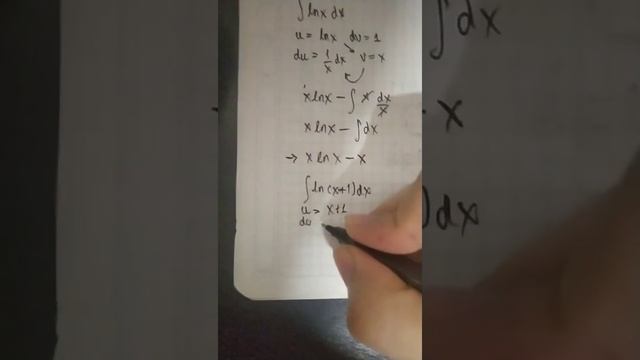 ∫ ln x dx
u = ln x dv = 1
du = 1/x dx v = x
x ln x - ∫ x dx/x
x ln x - ∫ dx
→ x ln x - x
∫ ln(x+1) dx
u = x+1
du